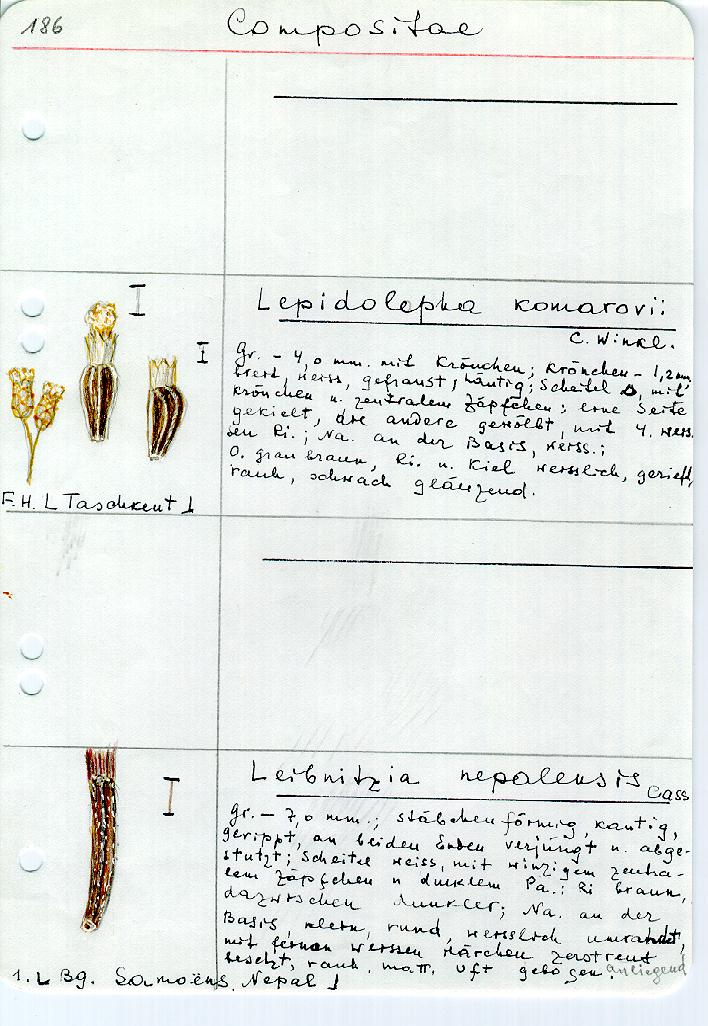 186
Compositae
Lepidolepha komarovii
C. Winkl.
Gr. – 4,0 mm. mit Krönchen; Krönchen – 1,2 mm
breit, weiss, gefranst, häutig; Scheitel, mit
krönchen u. zentralem Zäpfchen; eine Seite
gekielt, die andere gewölbt, mit 4. weis-
sen Ri.; Na. an der Basis, weiss.;
O. graubraun, Ri. u. Kiel weisslich, gerieft,
rauh, schwach glänzend.
F.H. L Taschkent
Leibnitzia nepalensis
Cass
Gr. – 7,0 mm.; stäbchenförmig, kantig,
gerippt, an beiden Enden verjüngt u. abge-
stutzt; Scheitel weiss, mit winzigem zentra-
lem Zäpfchen u dunklem Pa.; Ri braun,
dazwischen dunkler; Na. an der
Basis, klein, rund, weisslich umrandet,
mit feinen weissen Härchen zerstreut
besetzt, rauh. matt. Oft gebogen. anliegend
1. L Bg. Samoëns, Nepal